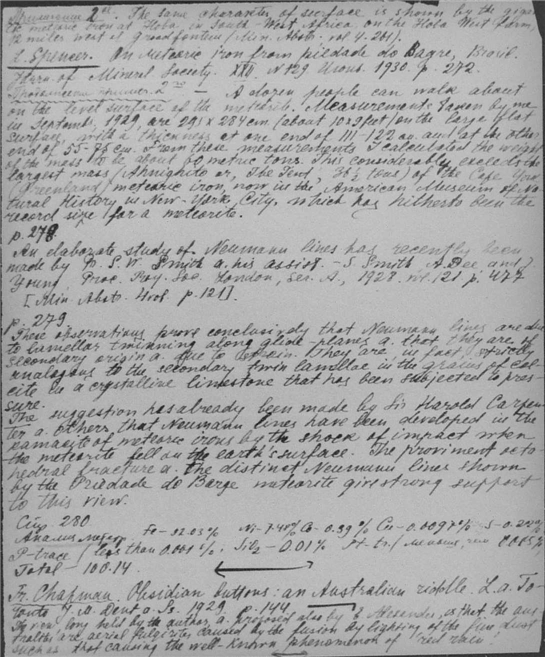 2nd. The same character of surface is shown by the
meteoric iron at Hoba, South West Africa, on the Hoba West Farm,
miles west of Grootfontein (Min. Abstr. vol 4. 261).
L. Spencer. On Meteoric iron from Piedade do Bagre, Brazil.
of Mineral Society. XXII. N 129 1930. p. 272.
2nd — A dozen people can walk about
on the level surface of the meteorite. Measurements taken by me
in Septemb. 1929, are 291 x 284 cm (about 10 x 9 feet) on the large flat
surface, with a thickness at one end of 111-122 cm and at the other
end of 55-75 cm. From these measurements I calculated the weight
of the mass to be about 60 metric tons. This considerably exceeds the
largest mass (Ahnighito or, The Tent, 36½ tons) of the Cape York
(Greenland) meteoric iron, now in the American Museum of Na-
tural History in New-York City, which has hitherto been the
record size for a meteorite.
p. 278
An elaborate study of Neumann lines has recently been
made by S. W. Smith a. his assist. - S Smith, A. Dee and
Young. Proc. Roy. Soc. London, Ser. A., 1928. vol. 121 p. 477
[Min. Abstr. p. 121].
p. 279
These observations prove conclusively that Neumann lines are due
to lamellar twinning along glide-planes a. that they are of
secondary origin a. due to strain. They are, in fact, strictly
analogous to the secondary twin lamellae in the grains of cal-
cite in a crystalline limestone that has been subjected to pres-
sure.
The suggestion has already been made by Sir Harold Carpen-
ter a. others, that Neumann lines have been developed in the
kamacite of meteoric irons by the shock of impact when
the meteorite fell on the earth's surface. The prominent octa-
hedral fracture a. the distinct Neumann lines shown
by the Piedade do Bagre meteorite give strong support
to this view.
280
Fe - 92.03% Ni - 7.40% Co - 0.39% Cu - 0.009% S -
P - trace (less than 0.001%, SiO2 - 0.01% Pt - tr.
Total - 100.14.
Fr. Chapman. Obsidian buttons: an Australian riddle. L. a. To-
1929. p. 144.
long held by the author, a. proposed also by J. Alexander, is that the aus-
tralites are aerial fulgurites caused by the fusion by lightning of the fine dust
such as that causing the well-known phenomenon of "red rain".